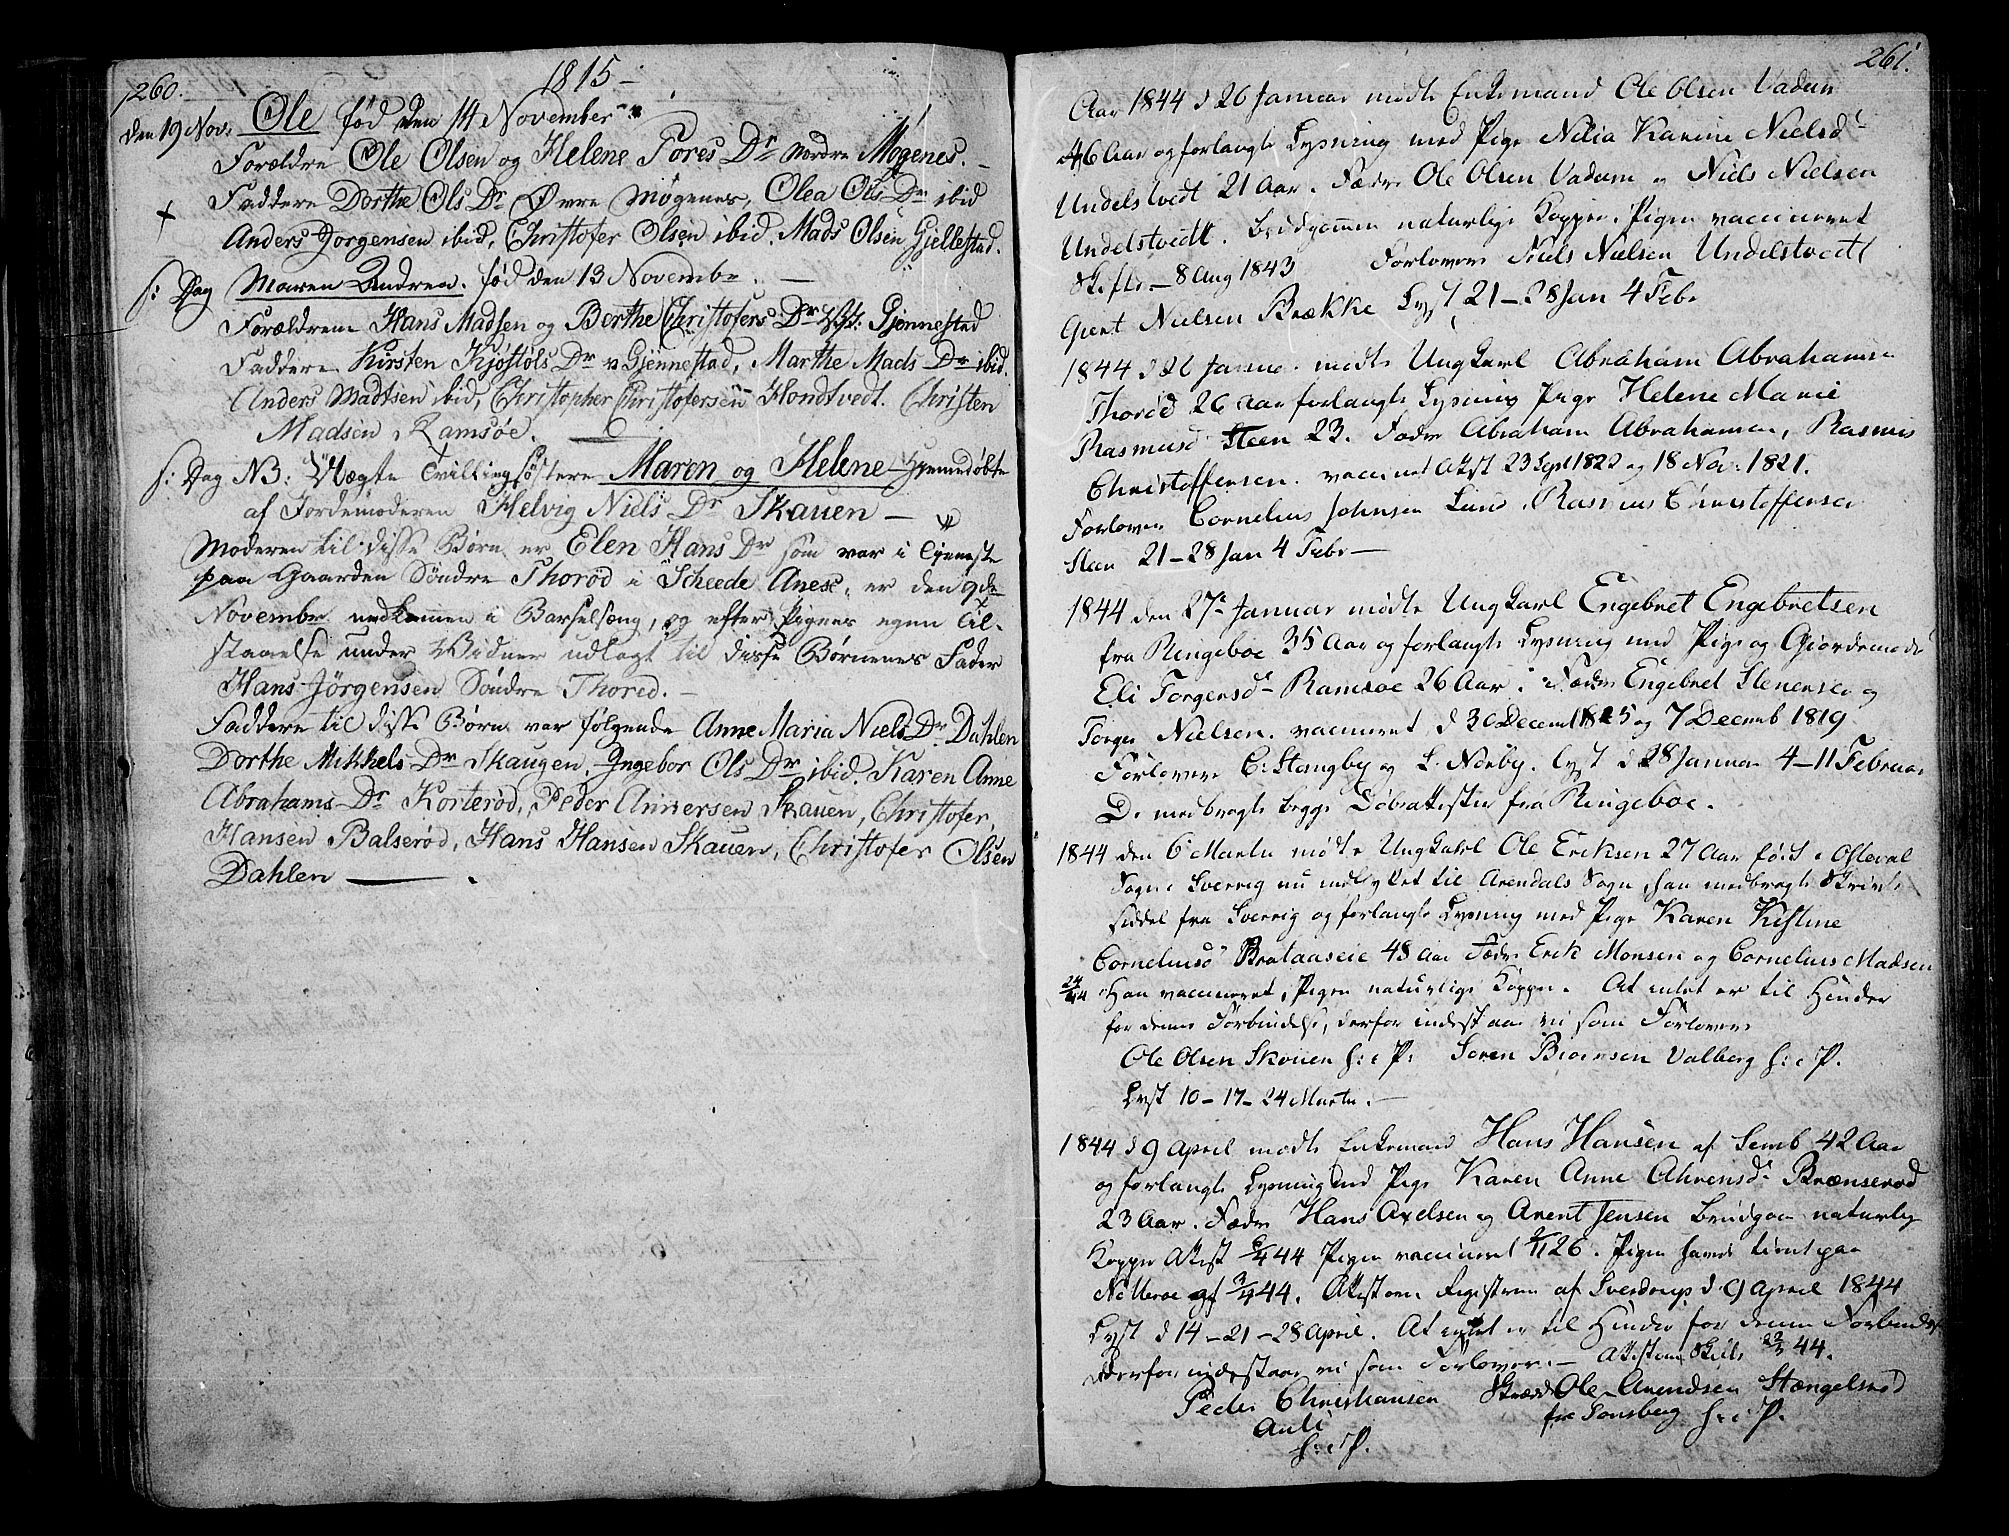 260.
1815 –
den 19 Nov: Ole fød den 14 November
Forældre Ole Olsen og Helene Tores Dr Nordre Møgenes. –
Faddere Dorthe Ols Dr Øvre Møgenes, Olea Ols Dr ibid
Anders Jørgensen ibid, Christofer Olsen ibid, Mads Olsen Gjellestad.
s: Dag Maren Andrea. fød den 13 Novembr. –
Forældrene Hans Madsen og Berthe Christofers Dr Gjennestad
Faddere Kirsten Kjøstols Dr Gjennestad, Marthe Mads Dr ibid.
Anders Madtsen ibid, Christopher Christofersen Hondtvedt. Christen
Madsen Ramsøe. –
s: Dag NB: Uægte Tvillingsøstere Maren og Helene hjemmedøbte
af Jordemoderen Helvig Niels Dr Skauen –
Moderen til disse Børn er Elen Hans Dr som var i Tjeneste
paa Gaarden Søndre Thorød i Scheede Anese, er den 9de
Novembr nedkommen i Barselseng, og efter Pigens egen Til-
staaelse under Vidner udlagt til disse Børnenes Fader
Hans Jörgensen Söndre Thorød. –
Faddere til disse Børn var følgende Anne Maria Niels Dr Dahlen
Dorthe Mikkels Dr Skaugen, Ingebor Ols Dr ibid. Karen Anne
Abrahams Dr Korterød, Peder Annersen Skauen, Christofer
Hansen Balserød, Hans Hansen Skauen, Christofer Olsen
Dahlen –
261.
Aar 1844 d 26 Januar mødte Enkemand Ole Olsen Vadum
46 Aar og forlangte Lysning med Pige Nilia Karine Nielsd
Undelstvedt 21 Aar. Fædre Ole Olsen Vadum og Niels Nielsen
Undelstvedt. Brudgommen naturlige Kopper, Pigen vaccineret
Skifte – 8 Aug 1843 Forlovere Niels Nielsen Undelstvedt
Giert Nielsen Brække Lyst 21 – 28 Jan 4 Febr
1844 d 26 Januar mødte Ungkarl Abraham Abrahamsen
Thorød 26 Aar forlangte Lysning Pige Helene Marie
Rasmusd Steen 23. Fædre Abraham Abrahamsen, Rasmus
Christoffersen. vaccineret Attest 23 Sept 1822 og 18 Nov: 1821.
Forlovere Cornelius Johnsen Lund, Rasmus Christoffersen
Steen 21 – 28 Jan 4 Febr –
1844 den 27 Januar mødte Ungkarl Engebret Engebretsen
fra Ringeboe 35 Aar og forlangte Lysning med Pige og Giordemoder
Eli Torgersd Ramsøe 26 Aar. Fædre Engebret Stenersen og
Torger Nielsen. vaccineret d 30 Decemb 1815 og 7 Decemb 1819.
Forlovere C. Stangeby og L. Nørby. Lyst d 28 Januar 4 – 11 Februar
De medbragte begge Døbeattester fra Ringeboe.
1844 den 6 Marts mødte Ungkarl Ole Eriksen 27 Aar født i
Sogn i Sverrig nu indflyttet til Arendals Sogn, han medbragte Skrivts
siddel fra Sverrig og forlangte Lysning med Pige Karen Kistine
Corneliusd Brataaseie 48 Aar Fædre Erik Monsen og Cornelius Madsen
24/4 44 Han vaccineret, Pigen naturlige Kopper. At intet er til Hinder
for denne Forbindelse, derfor indestaar vi som Forlovere
Ole Olsen Skouen h: i P: Søren Biørnsen Valberg h: i P.
Lyst 10 – 17 – 24 Marts. –
1844 d 9 April mødte Enkemand Hans Hansen af Semb 42 Aar
og forlangte Lysning med Pige Karen Anne Ahrensd Brænserød
23 Aar. Fædre Hans Axelsen og Arent Jensen Brudgom naturlige
Kopper Attest 6/4 44 Pigen vaccineret 26. Pigen havde tient paa
Nøtterøe af 3/4 44. Attest om Skiftet af Sverdrup d 9 April 1844
Lyst d 14 – 21 – 28 April. At intet er til Hinder for denne Forbindelse
derfor indestaar vi som Forlovere. – Attest om Skifte 22/3 44.
Peder Christiansen Skrædder Ole Arendsen Stængelsrød
Auli fra Tønsberg h: i P.
h: i P.